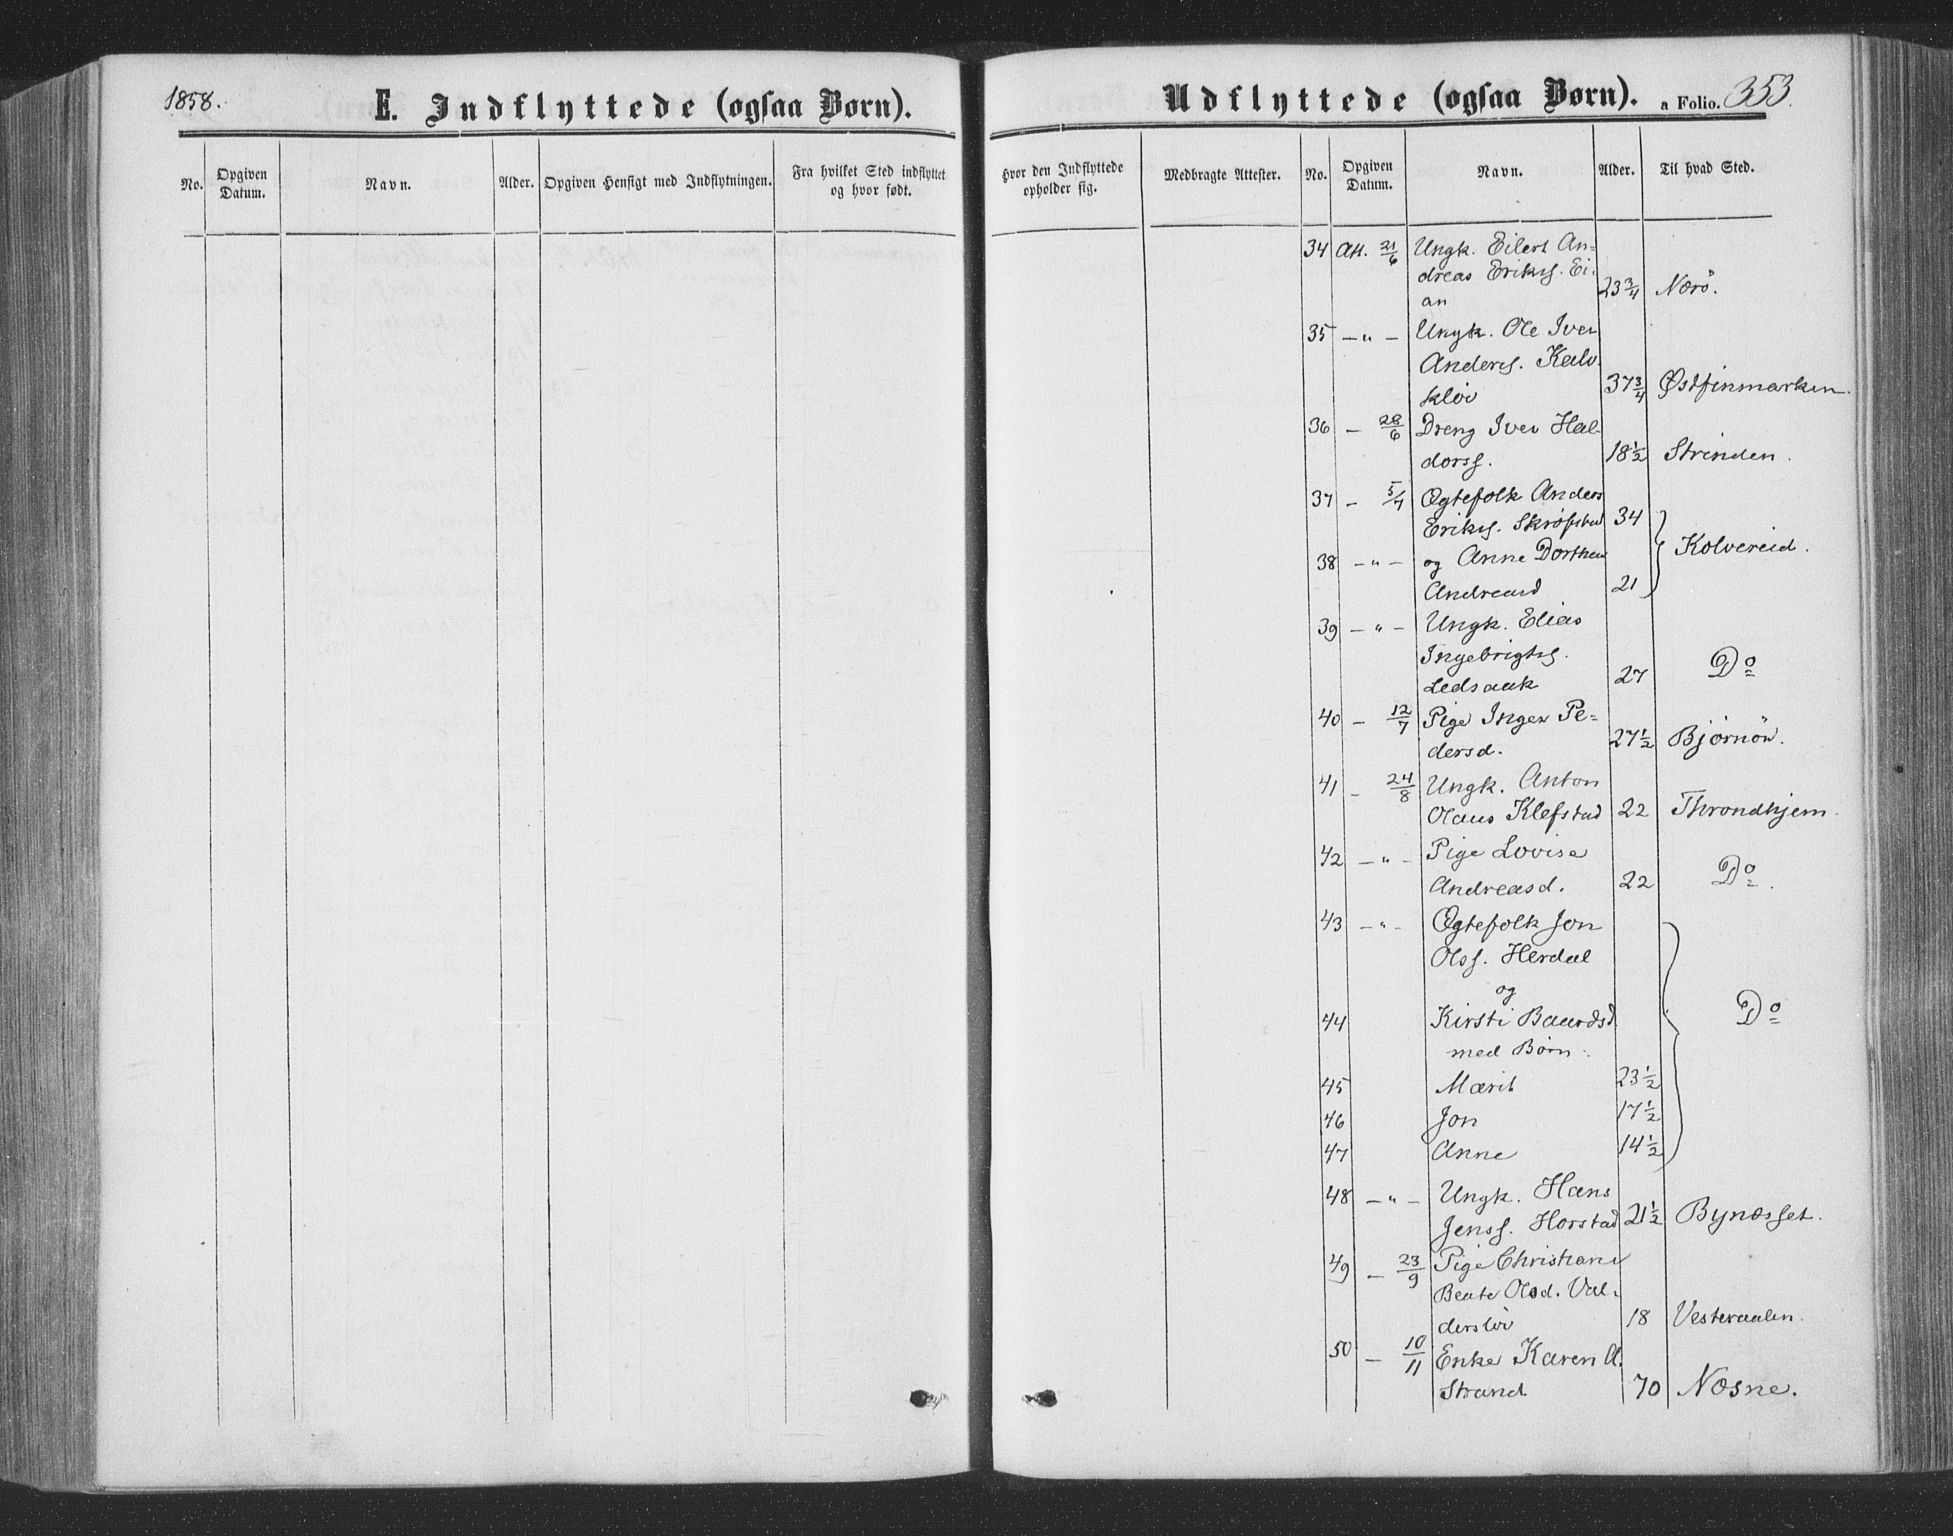 1858.
E. Indflyttede (ogsaa Børn).
No.
Opgiven Datum.
Navn.
Alder.
Opgiven Hensigt med Indflytningen.
Fra hvilket Sted indflyttet
og hvor født.
Udflyttede (ogsaa Børn).
a Folio. 353.
Hvor den Indflyttede
opholder sig.
Medbragte Attester.
No.
Opgiven Datum.
Navn.
Alder.
Til hvad Sted.
34 Att. 21/6 Ungk. Eilert An=
dreas Eriks. Ei-
an 23 3/4 Nærö.
35 — " — Ungk. Ole Iver
Anders. Kalv-
kløv 37 3/4 Østfinmarken.
36 — 28/6 Dreng Iver Hal-
dorss. 18 1/2 Strinden.
37 — 5/7 Ægtefolk Anders
Eriks. Skrøfstad 34
38 — " — og Anne Dorthea
Andreasd 21 Kolvereid.
39 — " — Ungk. Elias
Ingebrigts.
Ledsaak 27 Do
40 — 12/7 Pige Inger Pe=
dersd. 27 1/2 Bjørnör.
41 — 24/8 Ungk. Anton
Olaus Klefstad 22 Throndhjem.
42 — " — Pige Lovise
Andreasd. 22 Do.
43 — " — Ægtefolk Jon
Olss. Herdal
og
44 Kirsti Baardsd
med Børn.
45 Marit 23 1/2
46 Jon 17 1/2
47 Anne 14 1/2
Do
48 — " — Ungk. Hans
Jenss. Horstad 21 1/2 Bynæsset.
49 — 23/9 Pige Christiane
Beate Olsd. Val-
dersløv 18 Vesteraalen.
50 — 10/11 Enke Karen A.
Strand 70 Næsne.